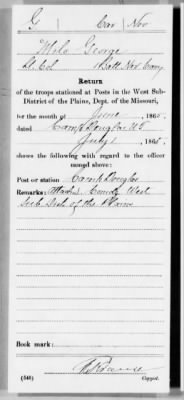 G Cav Nev
Milo George
Lt. Col 1 Batt Nev Cavy
Return
of the troops stationed at Posts in the West Sub-
District of the Plains, Dept. of the Missouri,
for the month of June, 1865.
dated Camp Douglas UT
July 1, 1865.
shows the following with regard to the officer
named above:
Post or station Camp Douglas
Remarks: Comdg West
Sub Dist of the Plains
Book mark:
(548) Copyist.